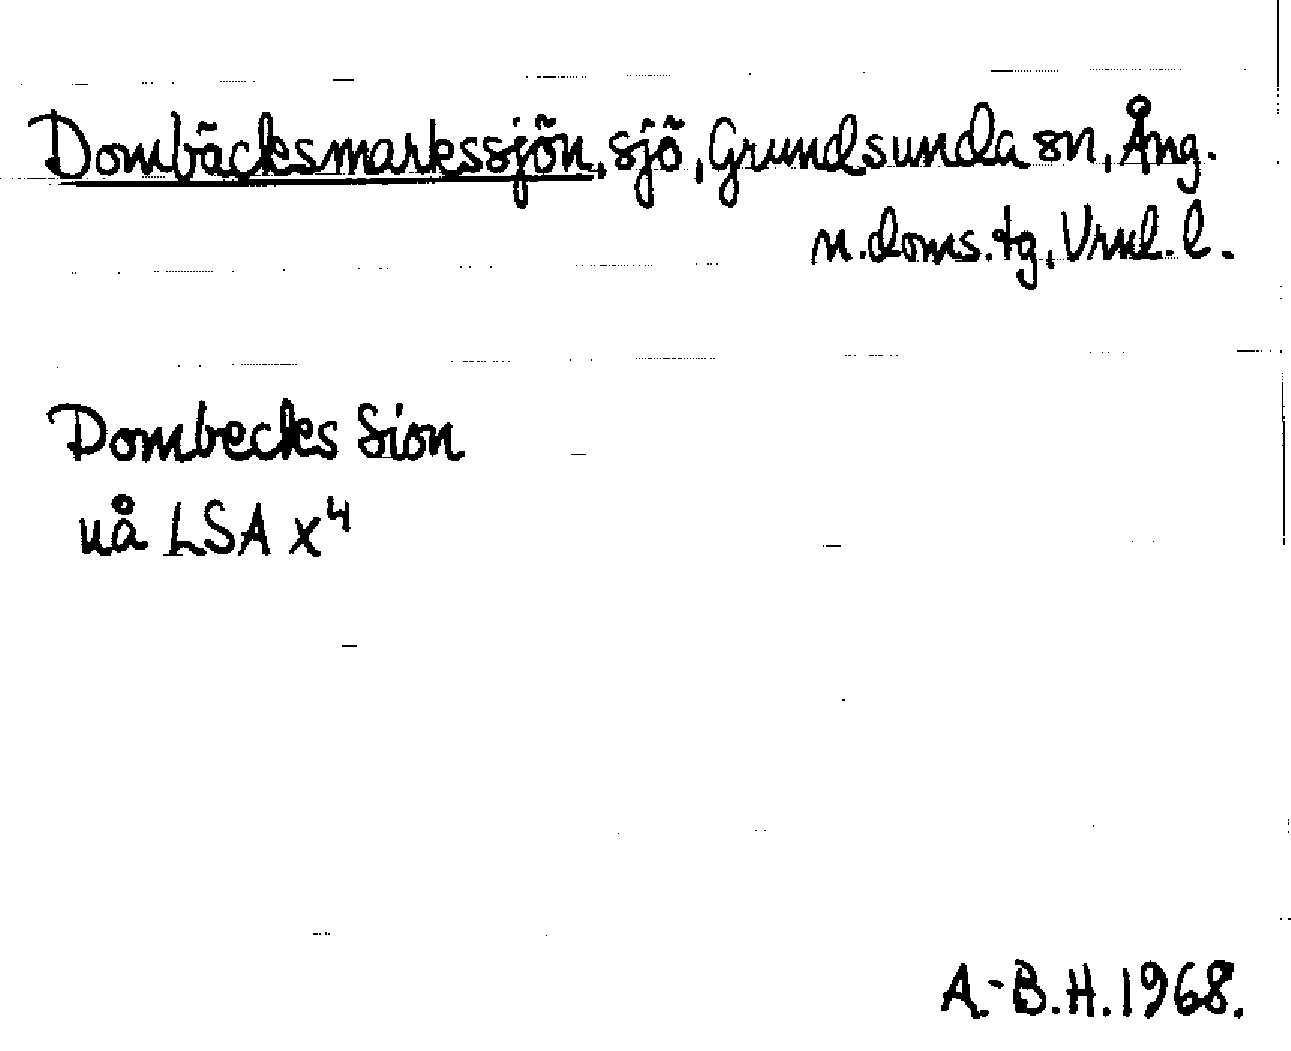 Dombäcksmarkssjön, sjö, Grundsunda sn, Ång.
n. doms. tg, Vrnl. l.
Dombecks Sion
uå LSA X4
A.-B.H. 1968.